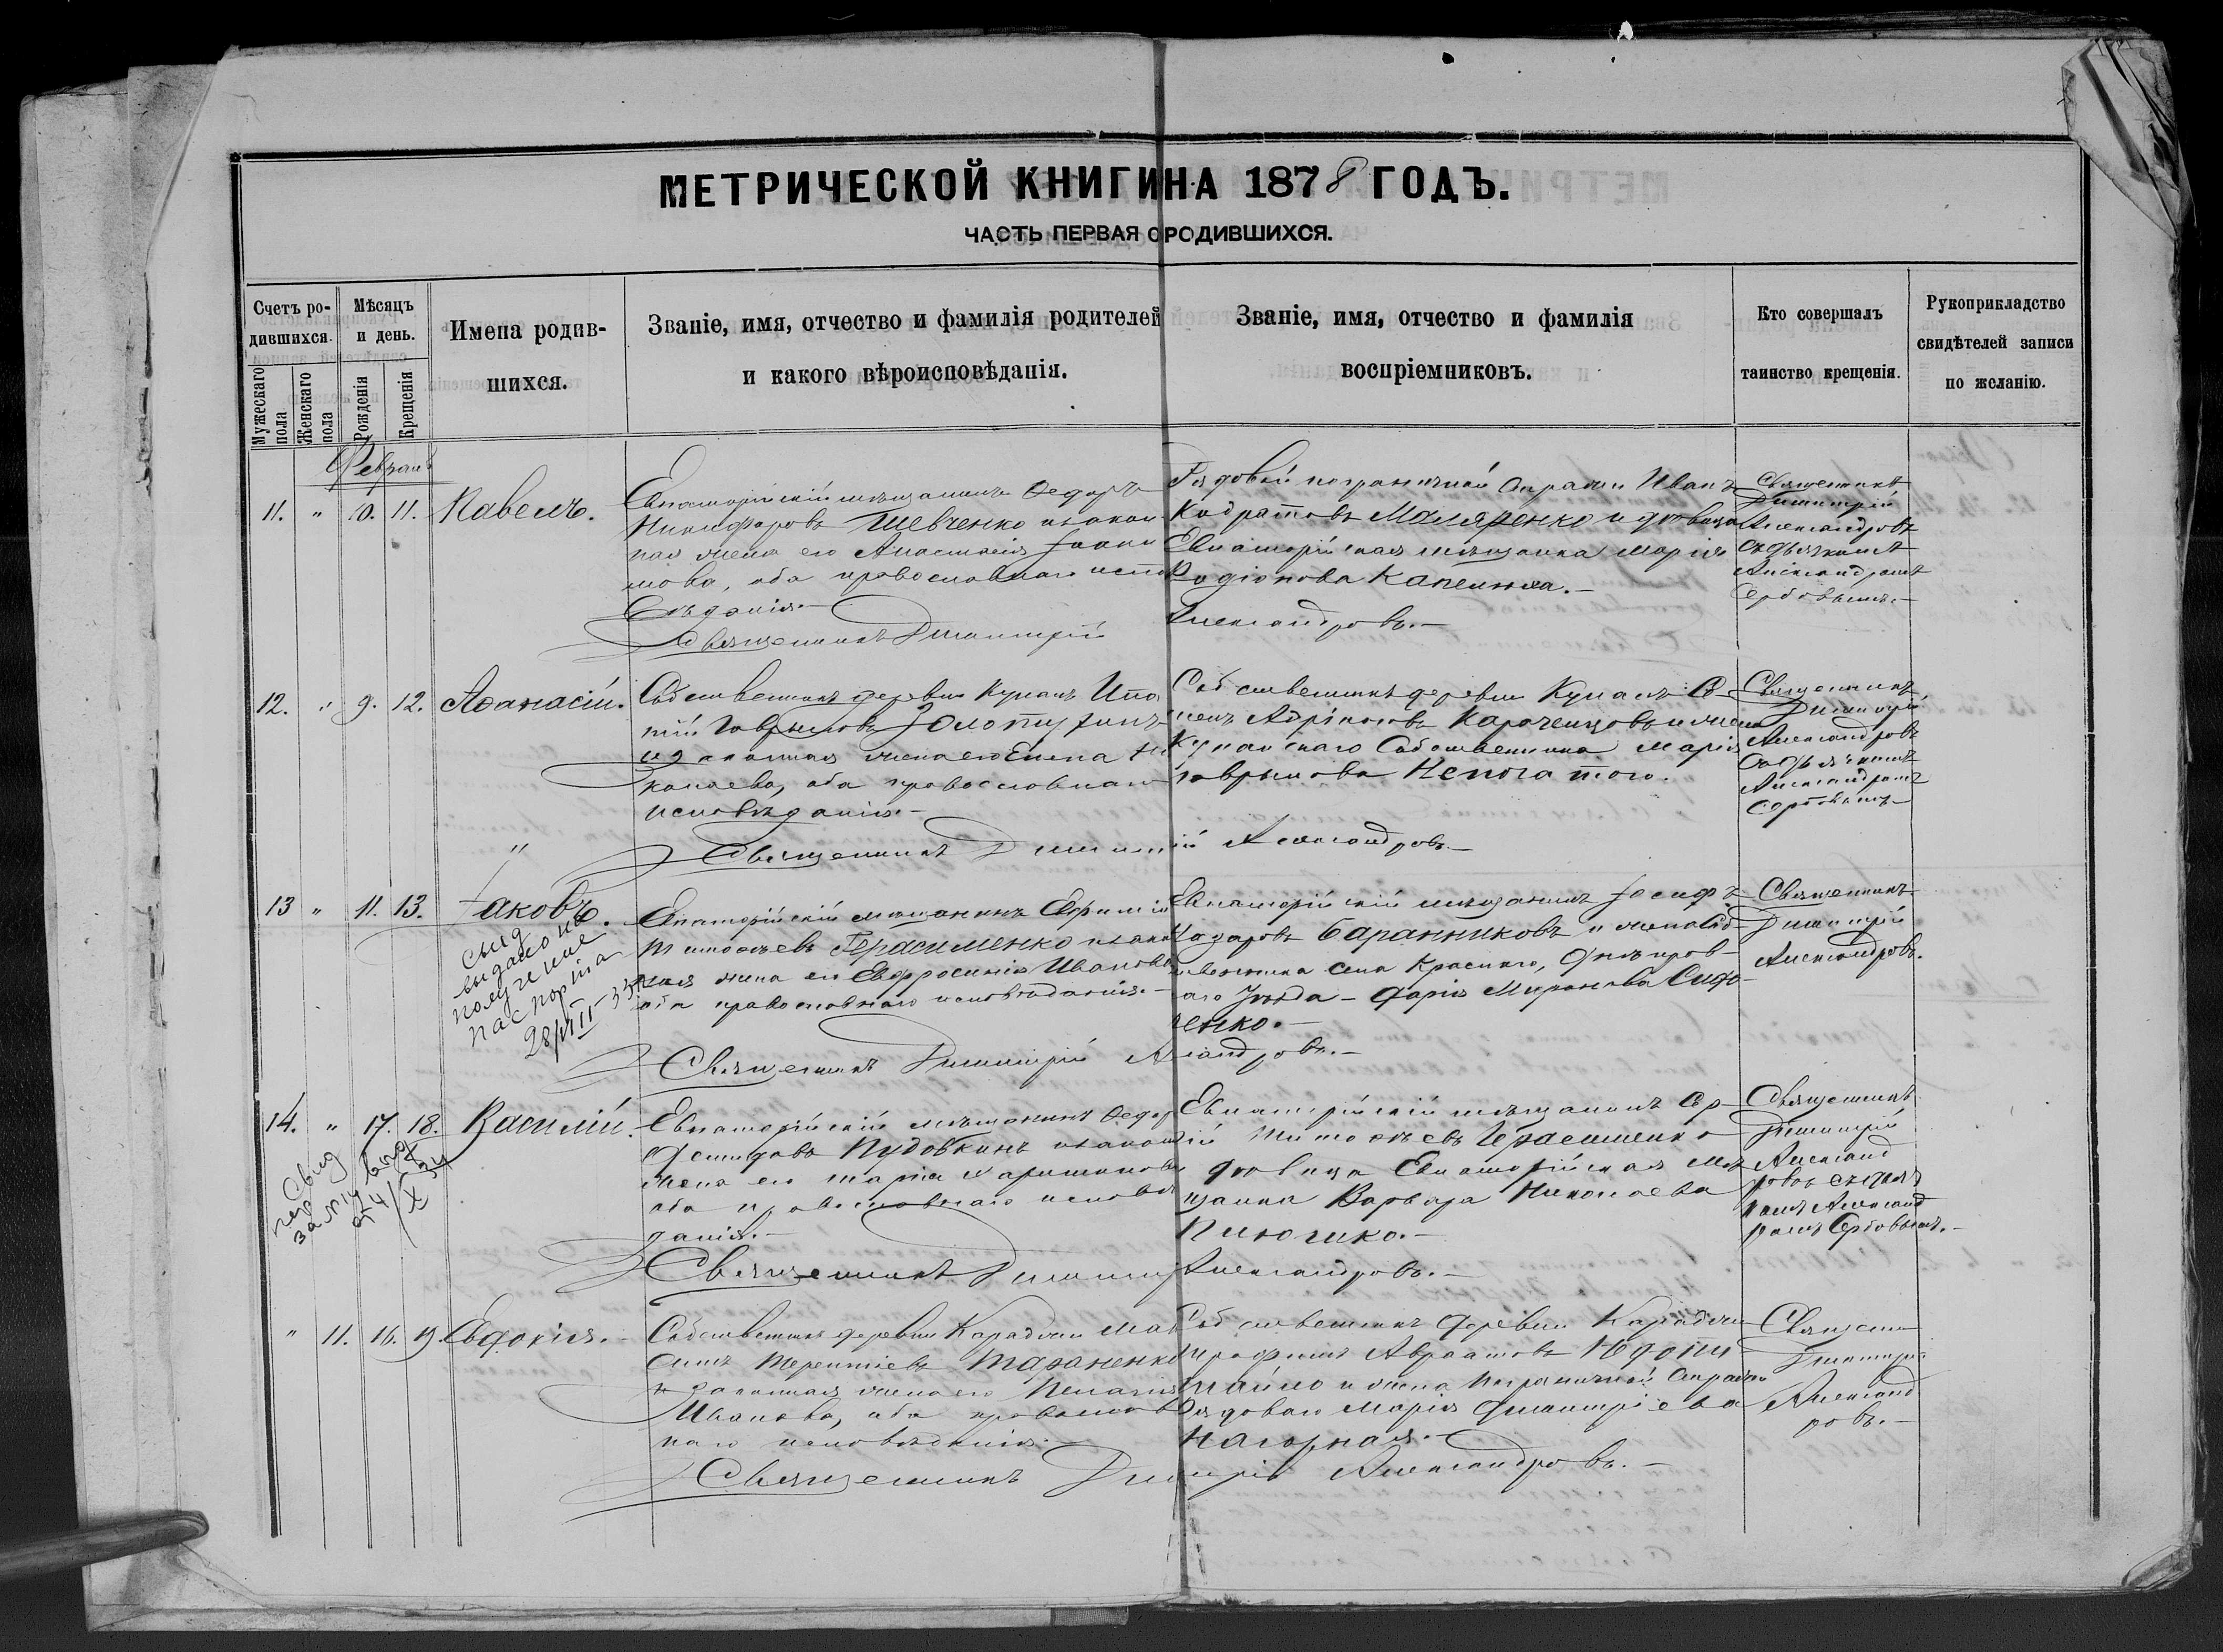 МЕТРИЧЕСКОЙ КНИГИ НА 1878 ГОДЪ.
ЧАСТЬ ПЕРВАЯ О РОДИВШИХСЯ.
Счетъ ро-
дившихся.
Мужескаго
пола
Женскаго
пола
Мѣсяцъ
и день.
Рожденія
Крещенія
Имена родив-
шихся.
Званіе, имя, отчество и фамилія родителей
и какого вѣроисповѣданія.
Званіе, имя, отчество и фамилія
воспріемниковъ.
Кто совершалъ
таинство крещенія.
Рукоприкладство
свидѣтелей записи
по желанію.
11. " 10. 11. Павелъ.
Евпаторійскій мѣщанинъ Ѳедоръ
Никифоровъ Шевченко и закон
ная жена его Анастасія Іоаки
мова, оба православнаго испо
вѣданія.
Священникъ Димитрій
Рядовой пограничной стражи Иванъ
Кодратовъ Маляренко и дѣвица
Евпаторійская мѣщанка Марія
Родіонова
Александровъ.
Священникъ
Димитрій
Александровъ
съ дьячкомъ
Александромъ
Сербовымъ.
12. " 9. 12. Аѳанасій.
Собственникъ деревни Кунанъ Ипа
тій Гавриловъ Золотухинъ
и законная жена его Елена Ни
колаева, оба православнаго
исповѣданія.
Священникъ Димитрій Александровъ.
Собственникъ деревни Кунанъ
Адріановъ и жена
Кунанскаго Собственника Марія
Гаврилова Непогатого.
Священникъ
Димитрій
Александровъ
съ дьячкомъ
Александромъ
Сербовымъ
13 " 11. 13. Іаковъ.
свид
выдано на
получение
паспорта
28/VIII-33
Евпаторійскій мѣщанинъ Ефимій
Тимоѳеевъ Герасименко и закон
ная жена его Евфросинія Иванова
оба православнаго исповѣданія.
Священникъ Димитрій Александровъ.
Евпаторійскій мѣщанинъ Іосифъ
Назаровъ Баранниковъ и жена Соб-
ственника села Краснаго, Днѣпров-
аго Уѣзда - Дарія Миронова
ченко.
Священникъ
Димитрій
Александровъ.
14. " 17. 18. Василій.
Свид
за №
Евпаторійскій мѣщанинъ Ѳедоръ
Демидовъ Пудовкинъ и законная
жена его Марія Харитонова
оба православнаго исповѣ
данія.
Священникъ Димитрій Александровъ.
Евпаторійскій мѣщанинъ
Тимоѳеевъ Герасименко
дѣвица Евпаторійская мѣ
щанка Варвара Николаева
Священникъ
Димитрій
Александ
ровъ съ дьяч
комъ Александ
ромъ Сербовымъ.
" 11. 16. 19. Евдокія.
Собственникъ деревни Мак
симъ Терентіевъ Тараненко
и законная жена его Пелагія
Иванова, оба православ
наго исповѣданія.
Священникъ Димитрій Александровъ.
Собственникъ деревни
Трофимъ Авраамовъ
и жена Пограничной стражи
Рядоваго Марія Димитріева
Нагорная.
Священ
Димитрій
Александ
ровъ.